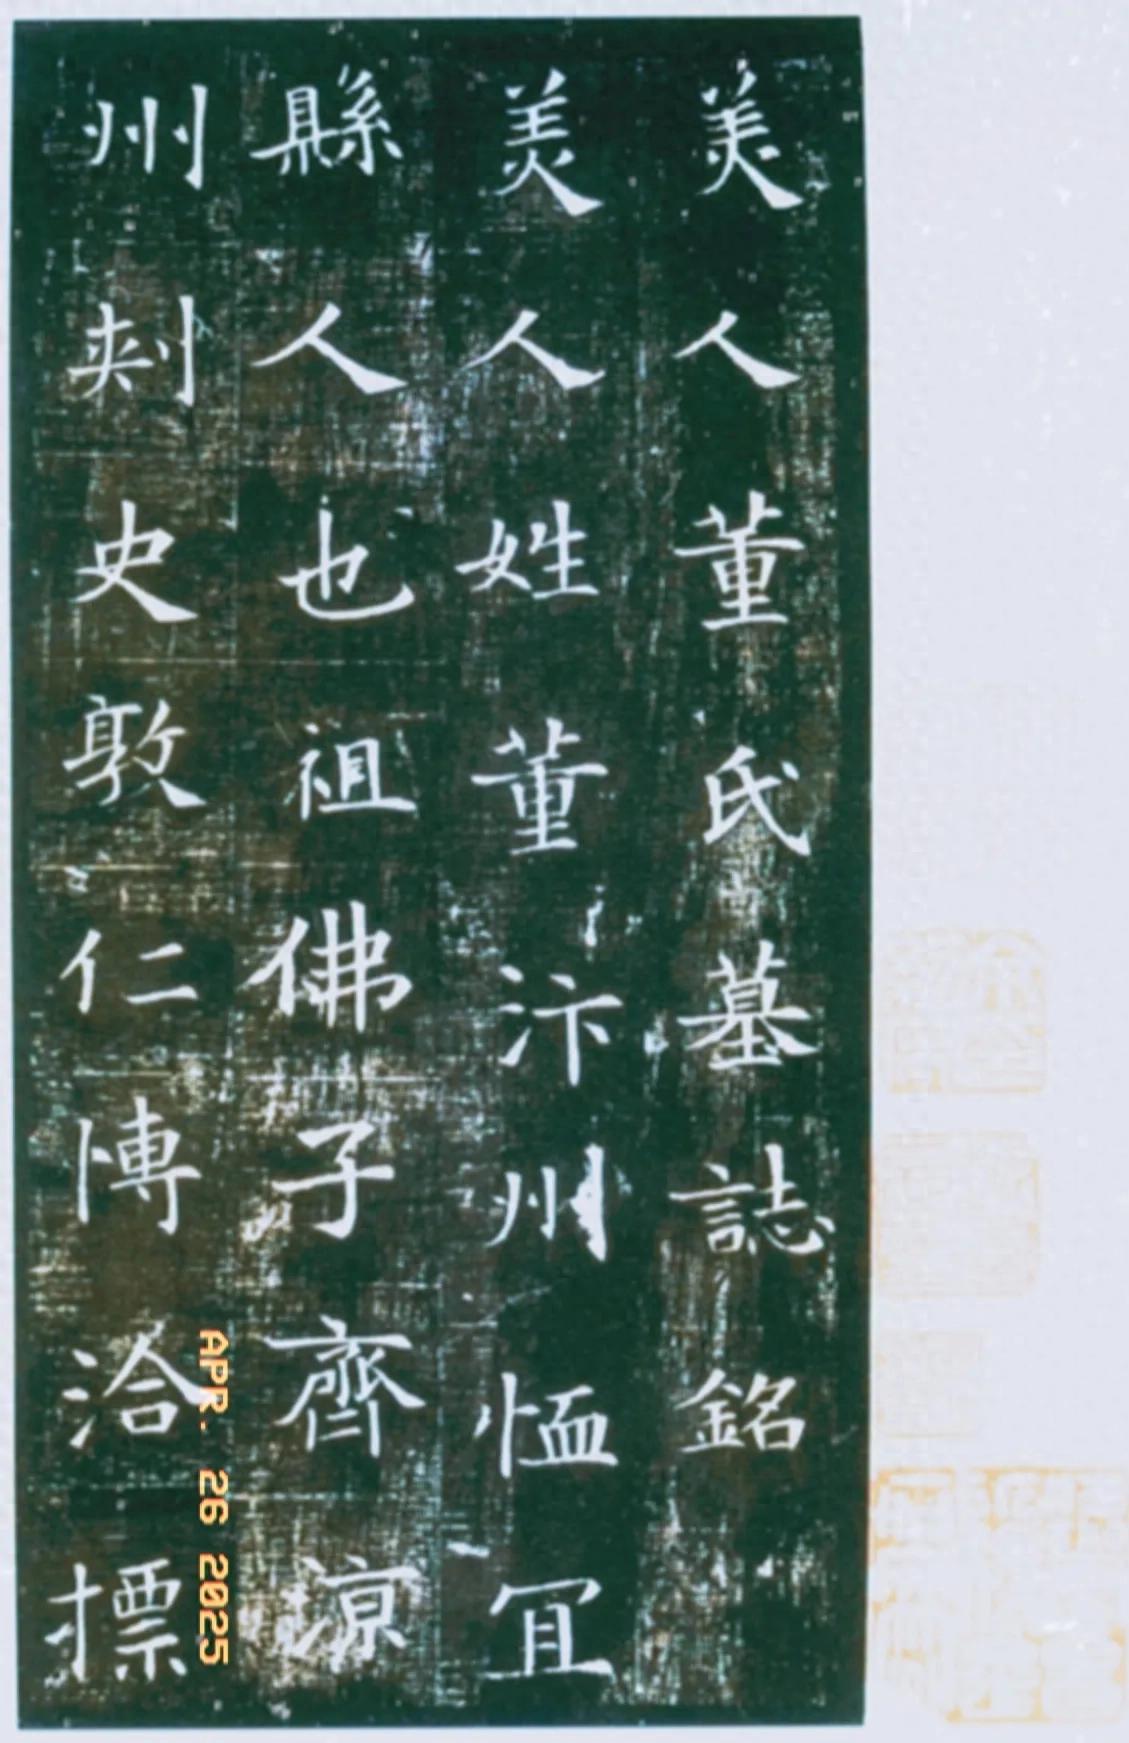 美人董氏墓誌銘
美人姓董汴州恤冝
縣人也祖佛子齊涼
州刺史敦仁博洽標
APR. 26 2025